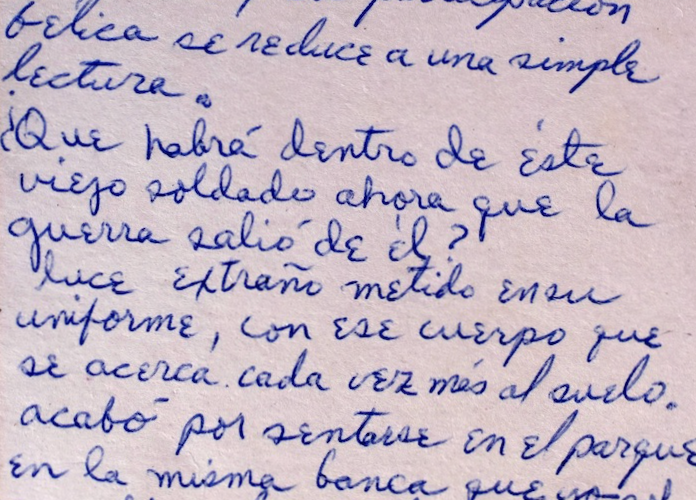 participación
bélica se reduce a una simple
lectura.
¿Que habrá dentro de éste
viejo soldado ahora que la
guerra salió de él?
luce extraño metido en su
uniforme, con ese cuerpo que
se acerca cada vez más al suelo.
acabó por sentarse en el parque
en la misma banca que